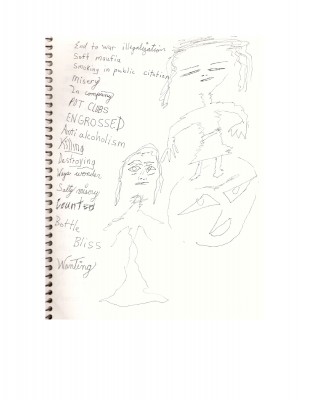 End to war illegalization
Soft mautia
Smoking in public citation
Misery
In company
POT CLUBS
ENGROSSED
Anti alcoholism
Destroying
wonder
Salty
Counted
Battle
Bliss
Wanting